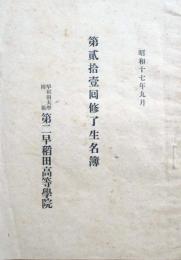 昭和十七年九月
第貳拾壹囘修了生名簿
早稻田大學附屬
第二早稻田高等學院